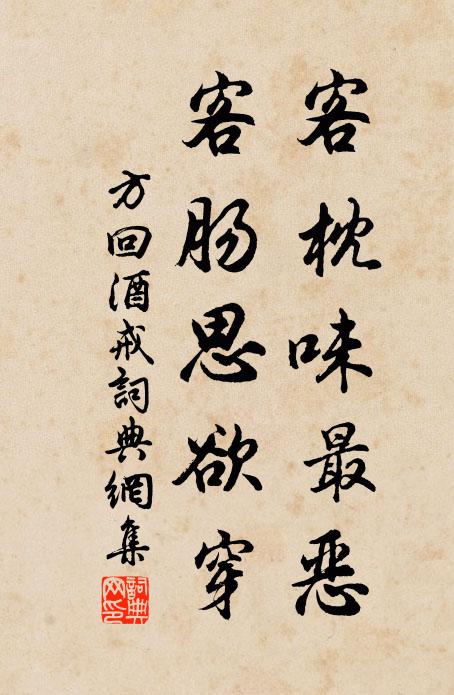 客枕味最恶
客肠思欲穿
方回酒戒詞典網集
詞典
网印